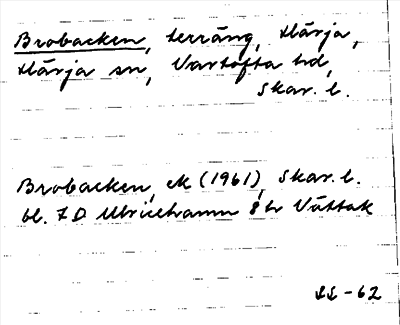 Brobacken, terräng, Härja,
Härja sn, Vartofta hd,
Skar. l.
Brobacken, ek (1961), Skar. l.
bl. 7 D Ulricehamn 8 h Vättak
LL-62